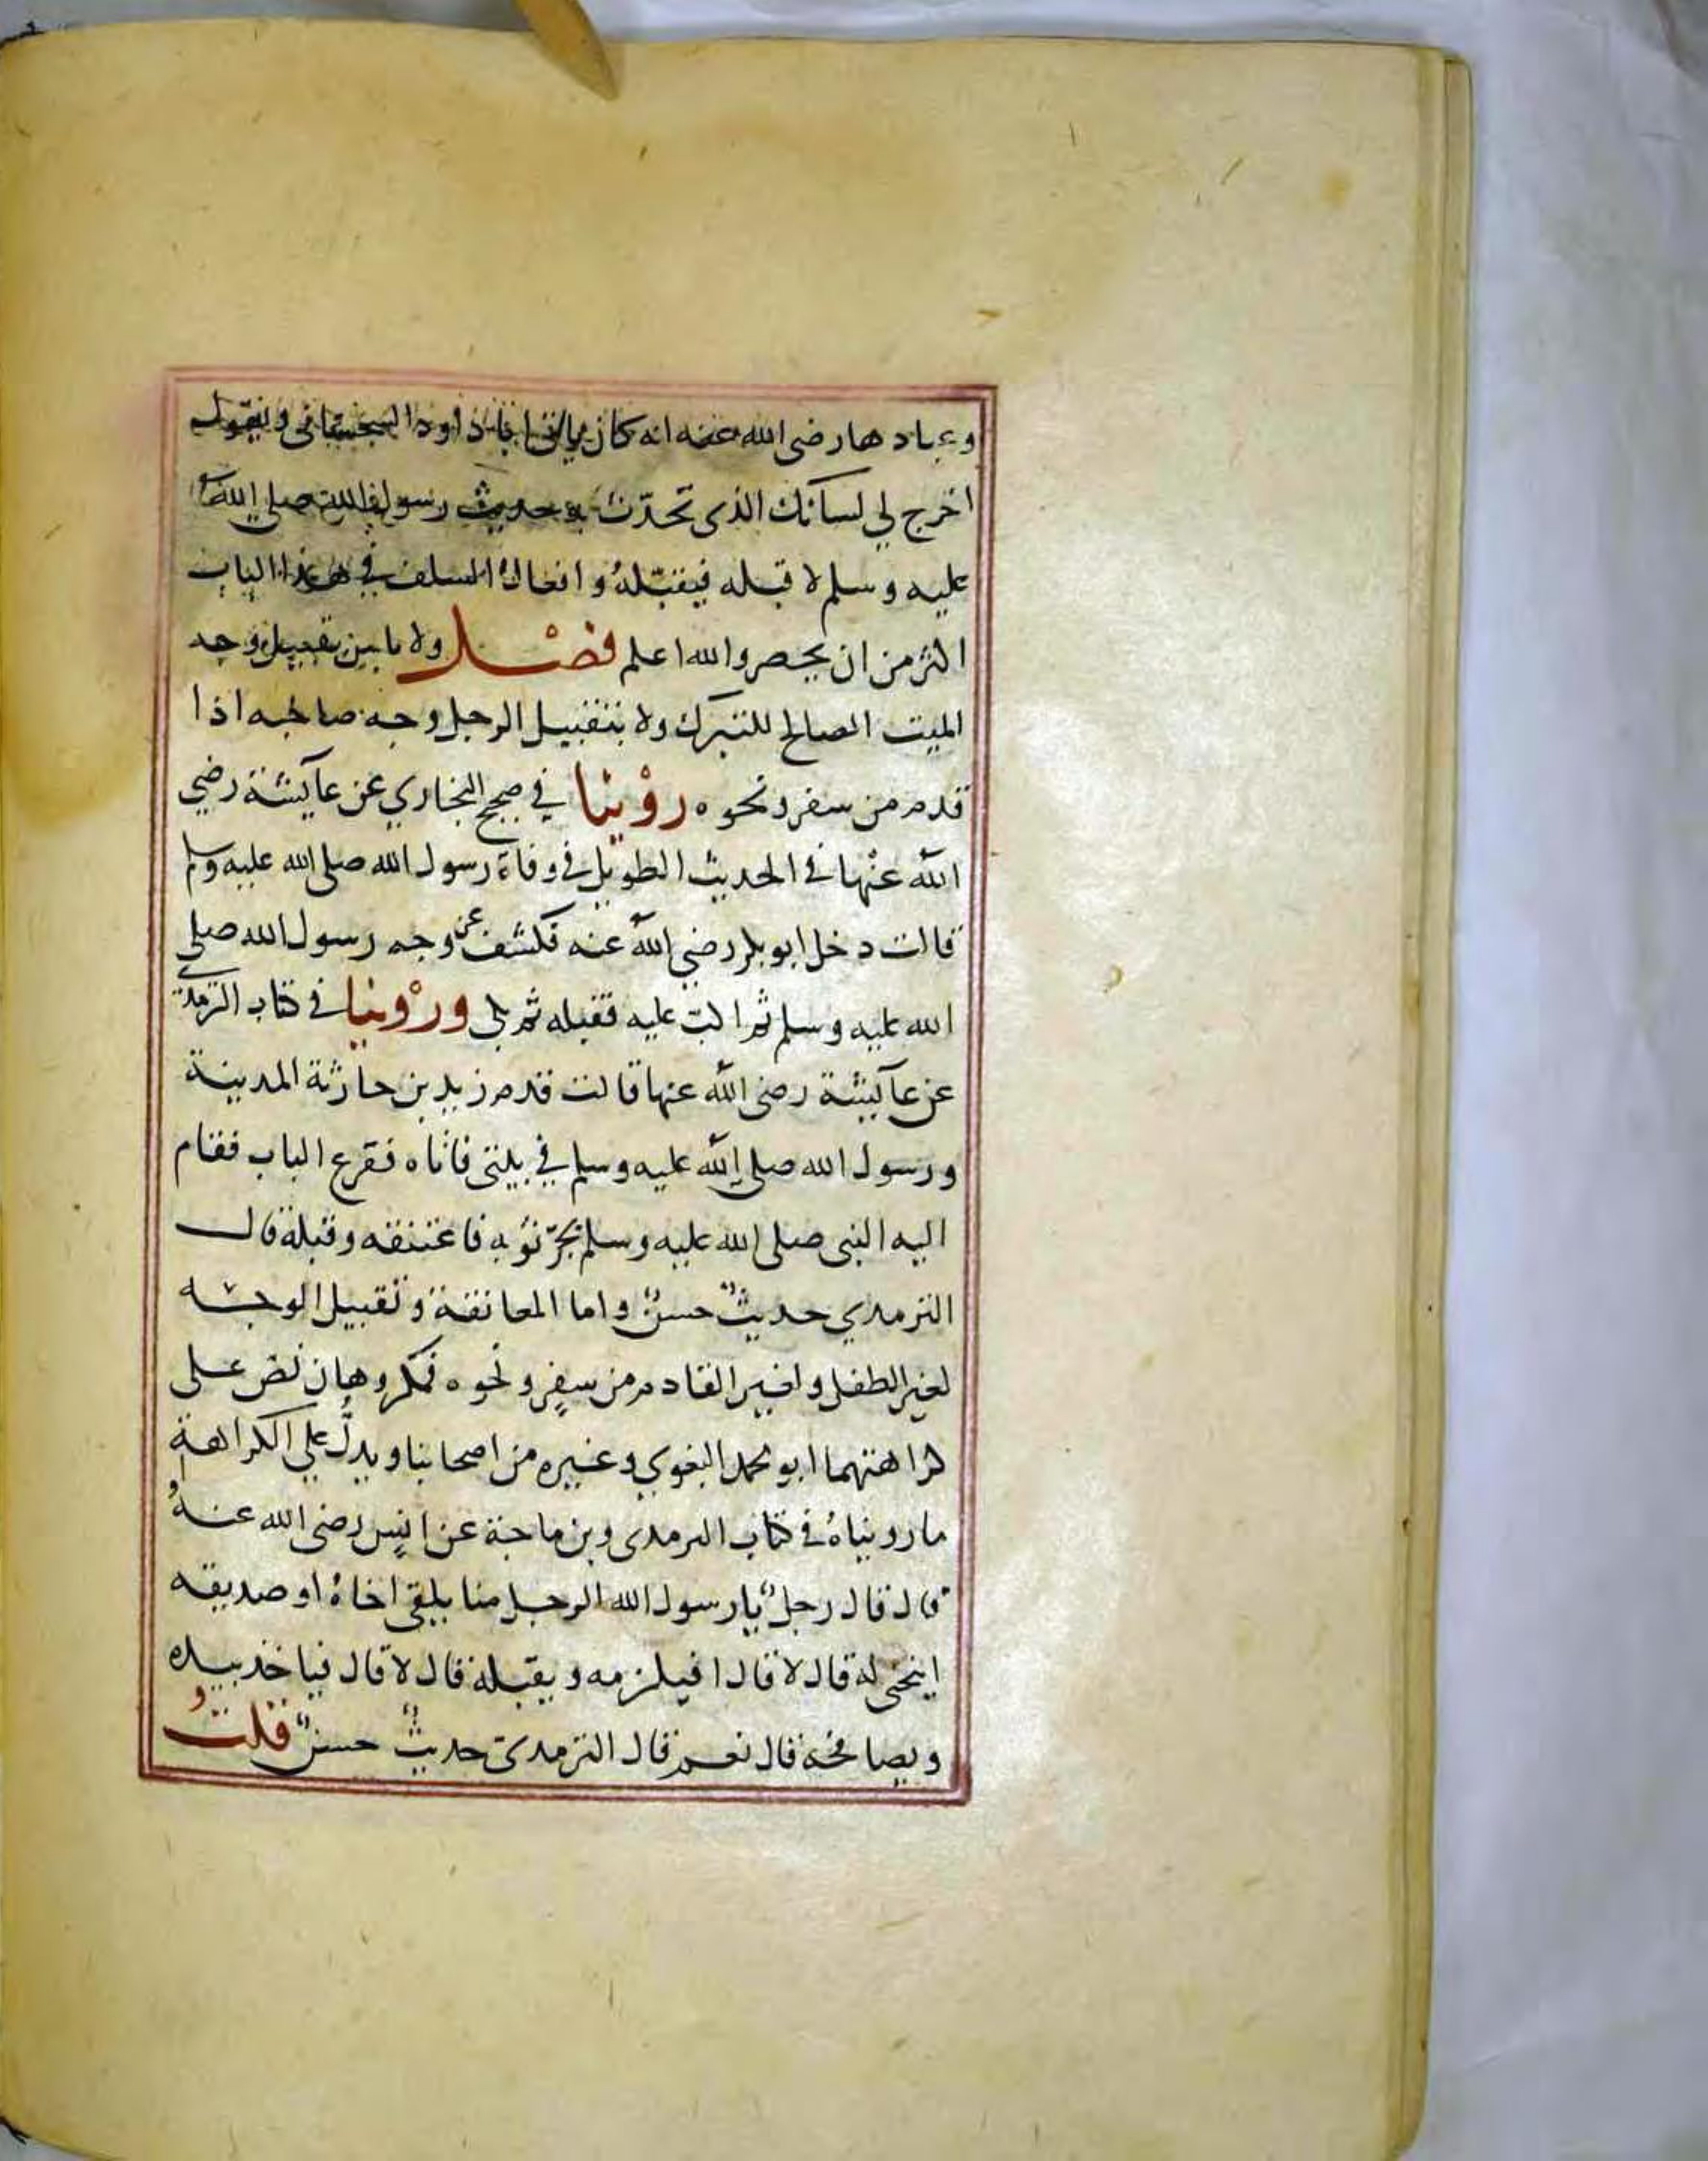 وعبادها رضى الله عنه انه كان ياتى اباداود السجستانى ويقول
اخرج لي لسانك الذى تحدّث به حديث رسول الله صلى الله
عليه وسلم لا قبله فيقبّلهُ وافعالُ السلف في هذا الباب
اكثر من ان يحصر والله اعلم فصْل ولا باس بتقبيل وجه
الميت الصالح للتبرك ولا بتقبيل الرجل وجه صاحبه اذا
قدم من سفر ونحوه روْينا في صحيح البخاري عن عآيشة رضي
اللّه عنْها في الحديث الطويل في وفاة رسول الله صلى الله عليه وسلم
قالت دخل ابو بكر رضي اللّه عنه فكشف عن وجه رسول الله صلى
الله عليه وسلم ثم اكبّ عليه فقبله ثم بكى وروْينا في كتاب الترمذي
عن عآيشة رضى اللّه عنها قالت قدم زيد بن حارثة المدينة
ورسول الله صلى اللّه عليه وسلم في بيتى فاتاه فقرع الباب فقام
اليه النبى صلى الله عليه وسلم يجرّ ثوبه فاعتنقه وقبله قال
الترمدي حديثٌ حسنٌ واما المعانقة وتقبيل الوجه
لغير الطفل ولغير القادم من سفرٍ ونحوه فمكروهان نص على
كراهتهما ابو محمد البغوي وغيره من اصحابنا ويدلُّ علي الكراهة
ما رويناهُ في كتاب الترمدى وبن ماجة عن انسٍ رضى الله عنهُ
قال قال رجلٌ يا رسول الله الرجل منا يلقى اخاهُ او صديقه
اينحنى له قال لا قال افيلزمه ويقبله قال لا قال فياخذ بيده
ويصافحه قال نعم قال الترمدى حديثٌ حسنٌ قلتُ